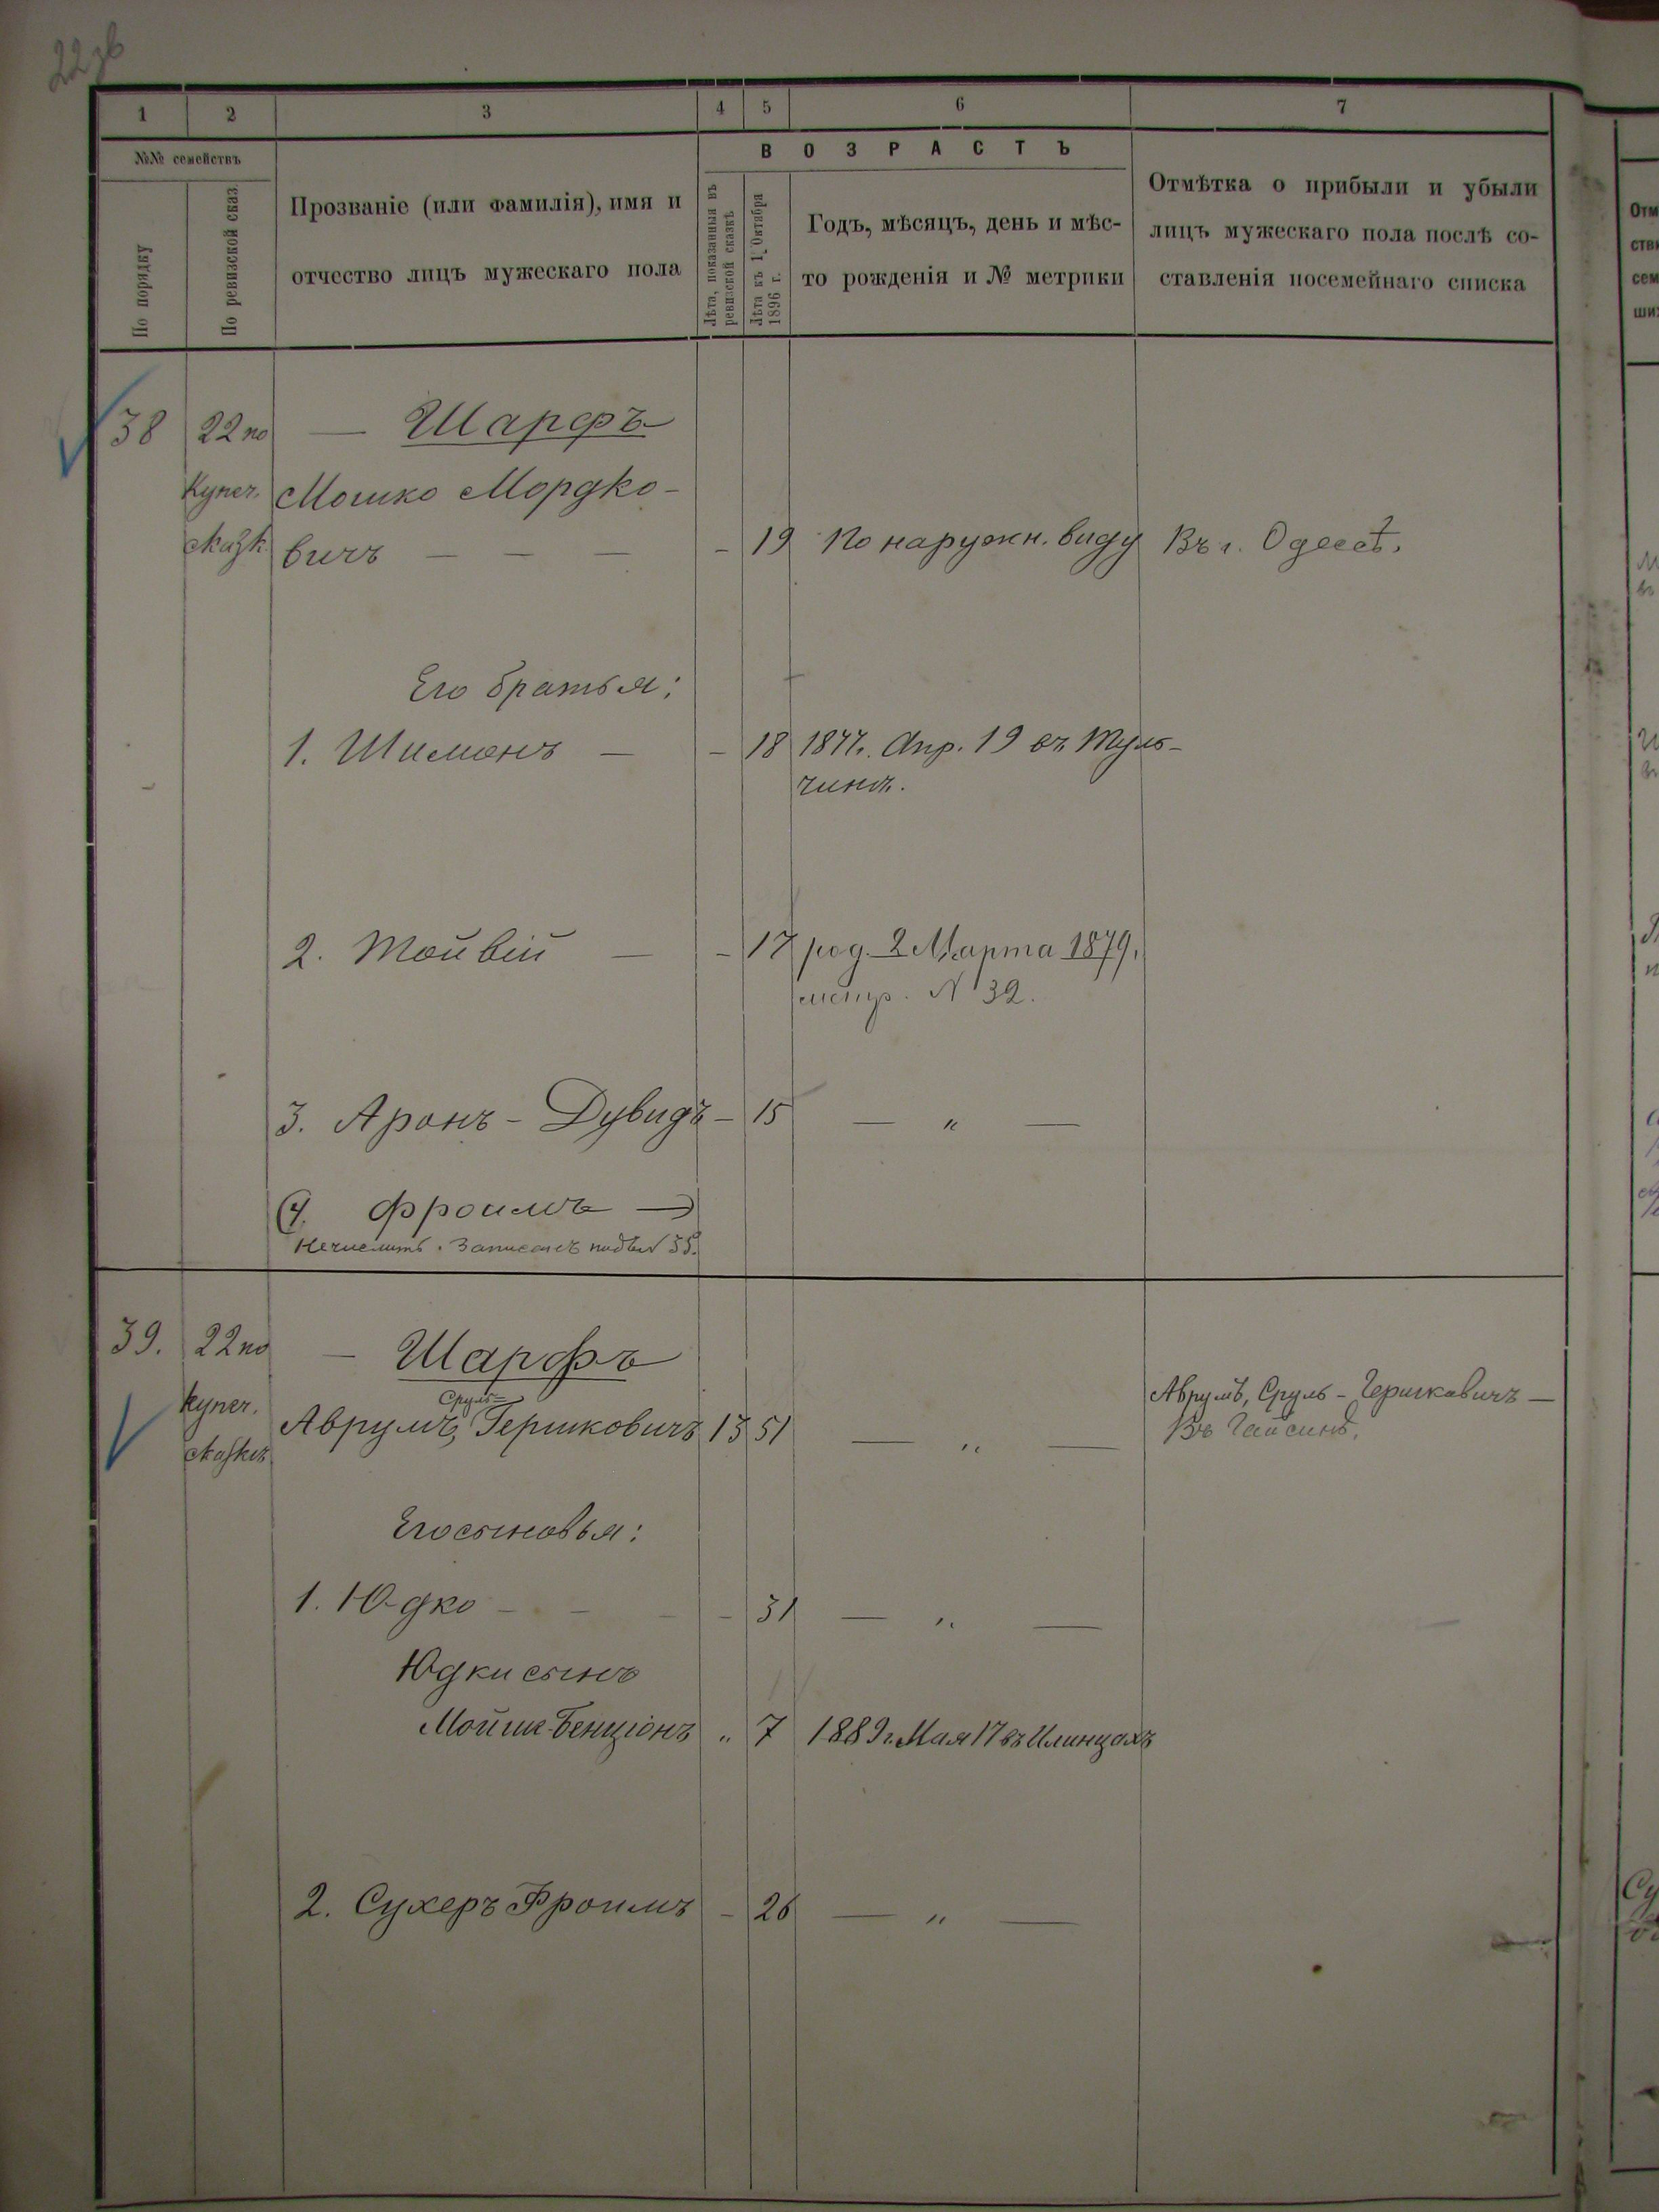 22зв
1 2 3 4 5 6 7
№№ семействъ
По порядку
По ревизской сказ.
Прозваніе (или фамилія), имя и
отчество лицъ мужескаго пола
ВОЗРАСТЪ
Лѣта, показанныя въ
ревизской сказкѣ
Лѣта къ 1 Октября
1896 г.
Годъ, мѣсяцъ, день и мѣс-
то рожденія и № метрики
Отмѣтка о прибыли и убыли
лицъ мужескаго пола послѣ со-
ставленія посемейнаго списка
38 22 по — Шарфъ
Купеч. Мошко Мордко-
сказк. вичъ — — — - 19 По наружн. виду Въ г. Одессѣ.
Его братья:
1. Шимонъ — - 18 1877г. Апр. 19 въ Туль-
чинѣ.
2. Тойвій — - 17 род. 2 Марта 1879.
метр. № 32.
3. Аронъ - Дувидъ - 15 — " —
(4. Фроимъ —)
Записанъ
39. 22 по — Шарфъ
Купеч. Сруль=
сказкѣ Аврумъ, Гершковичъ 13 51 — " —
Аврумъ, Сруль - Гершковичъ —
Въ Гайсинѣ.
Его сыновья:
1. Юдко - - - - 31 — " —
Юдки сынъ
Мойше-Бенціонъ " 7 1889г. Мая 17 въ Илинцахъ
2. Сухеръ Фроимъ - 26 — " —